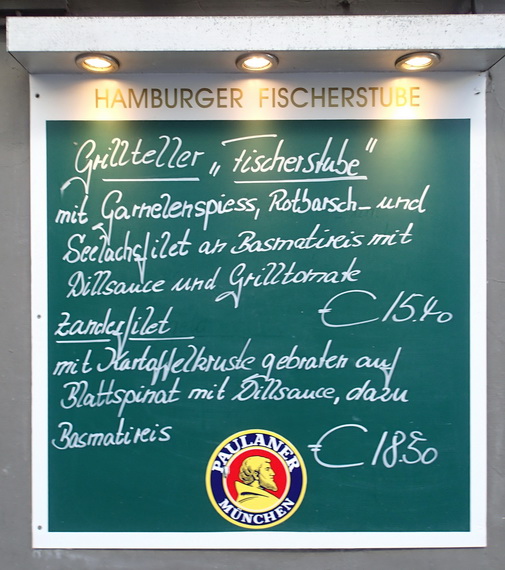 HAMBURGER FISCHERSTUBE
Grillteller „Fischerstube"
mit Garnelenspiess, Rotbarsch- und
Seelachsfilet an Basmatireis mit
Dillsauce und Grilltomate
€ 15.40
Zanderfilet
mit Kartoffelkruste gebraten auf
Blattspinat mit Dillsauce, dazu
Basmatireis
€ 18.50
PAULANER
MÜNCHEN